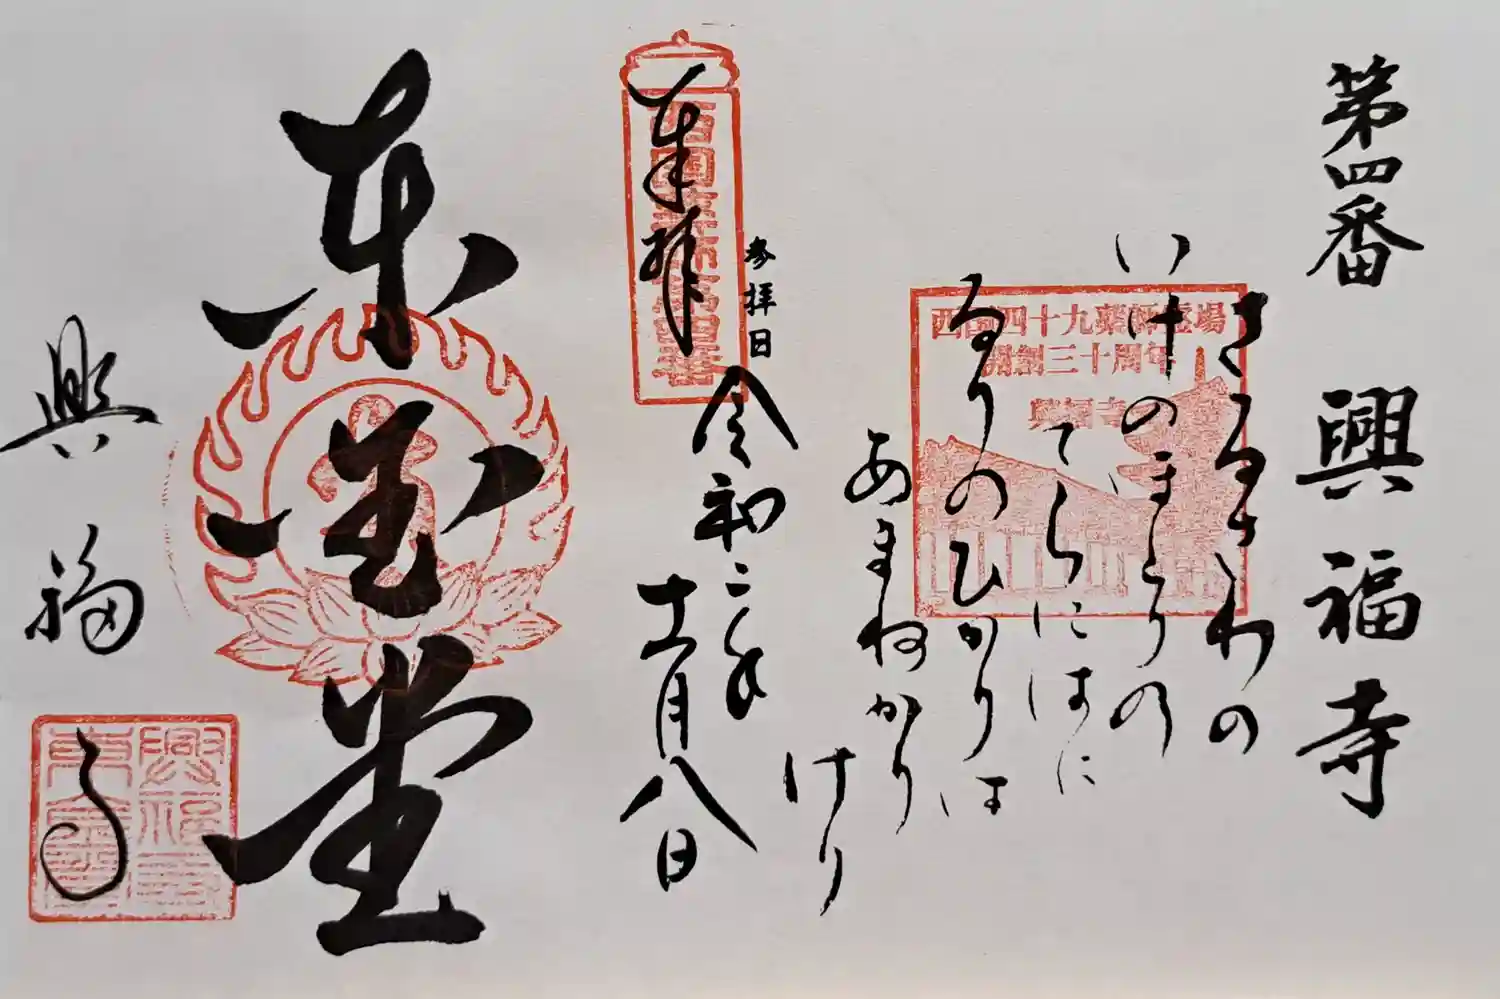 第四番 興福寺
さるさわの
いけのほとりの
てらにはに
るりのひかりは
あまねかり
けり
西国四十九薬師霊場
開創三十周年
興福寺
参拝日
令和二年
十一月八日
奉拝
西国薬師第四番
東金堂
興福寺